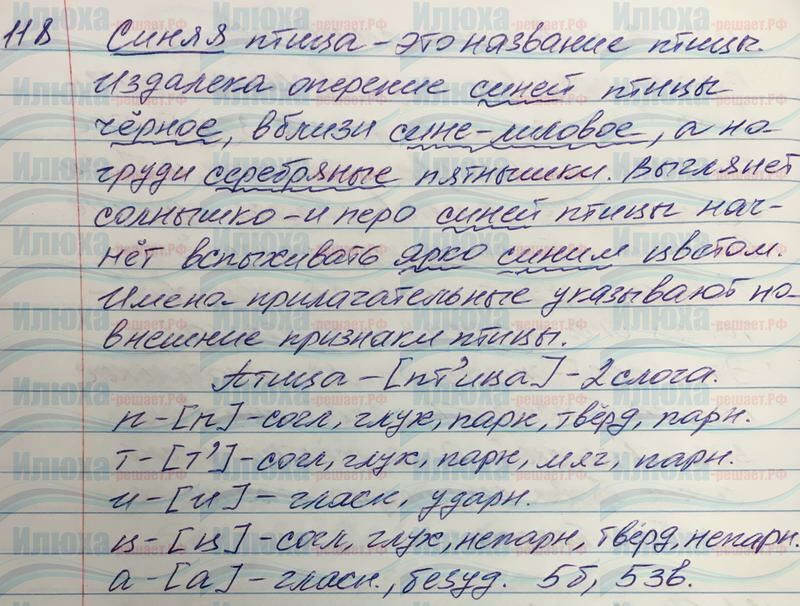 118 Синяя птица – это название птицы.
Издалека оперение синей птицы
чёрное, вблизи сине-лиловое, а на
груди серебряные пятнышки. Выглянет
солнышко – и перо синей птицы нач-
нёт вспыхивать ярко синим цветом.
Имена прилагательные указывают на
внешние признаки птицы.
Птица – [пт'ица] – 2 слога.
п – [п] – согл, глух, парн, твёрд, парн.
т – [т'] – согл, глух, парн, мяг, парн.
и – [и] – гласн, ударн.
ц – [ц] – согл, глух, непарн, твёрд, непарн.
а – [а] – гласн., безуд. 5б, 5зв.
Илюха-решает.РФ